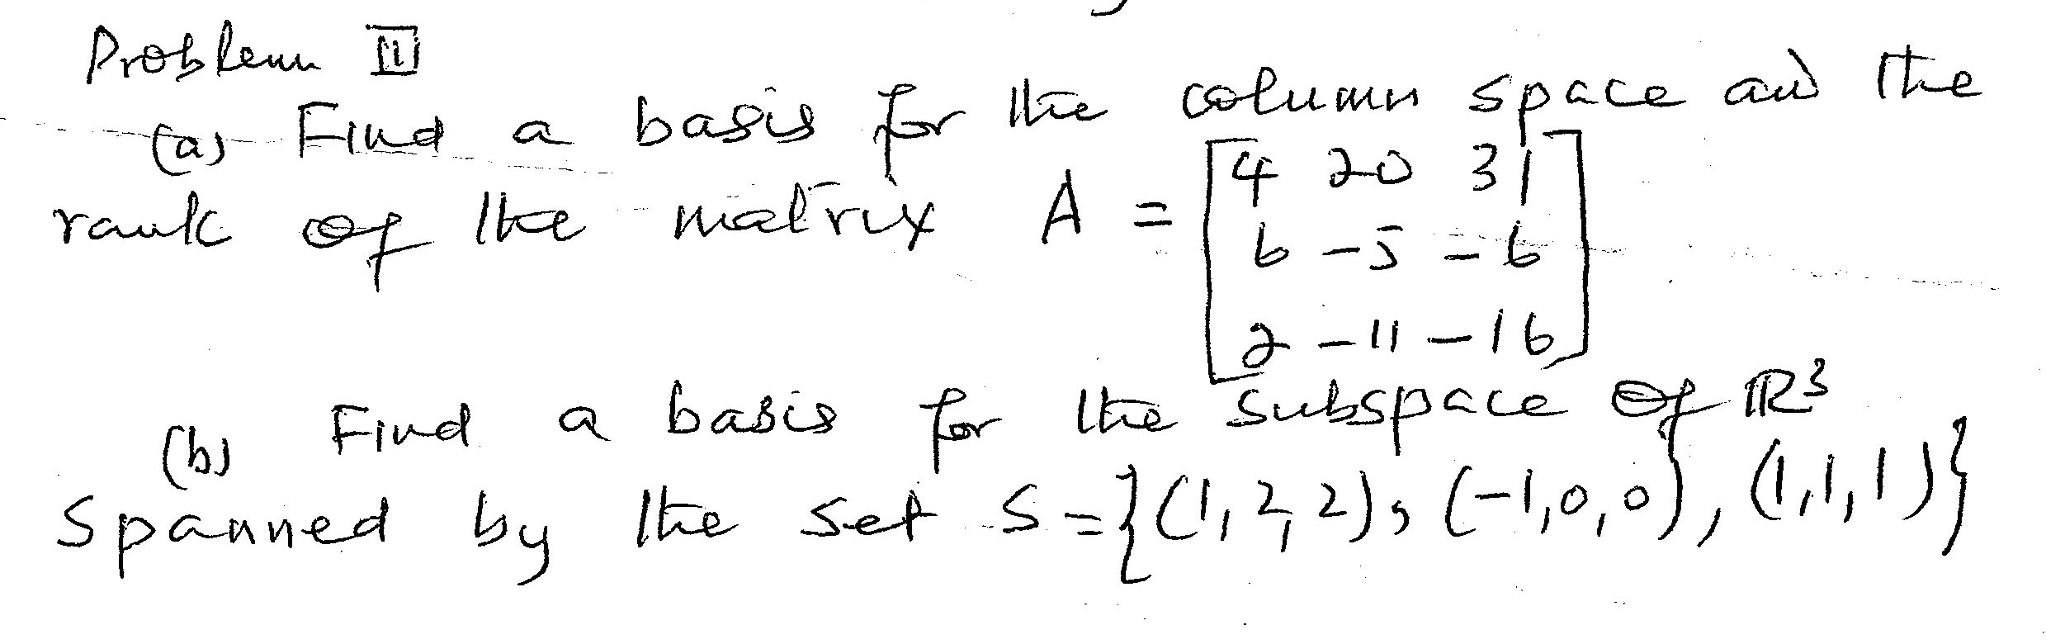 Problem II
(a) Find a basis for the column space and the
rank of the matrix A = [4 20 31
6 -5 -6
2 -11 -16]
(b) Find a basis for the subspace of ℝ³
Spanned by the set S = {(1,2,2), (-1,0,0), (1,1,1)}